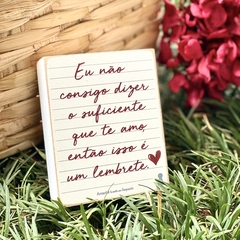 Eu não
consigo dizer
o suficiente
que te amo,
então isso é
um lembrete.